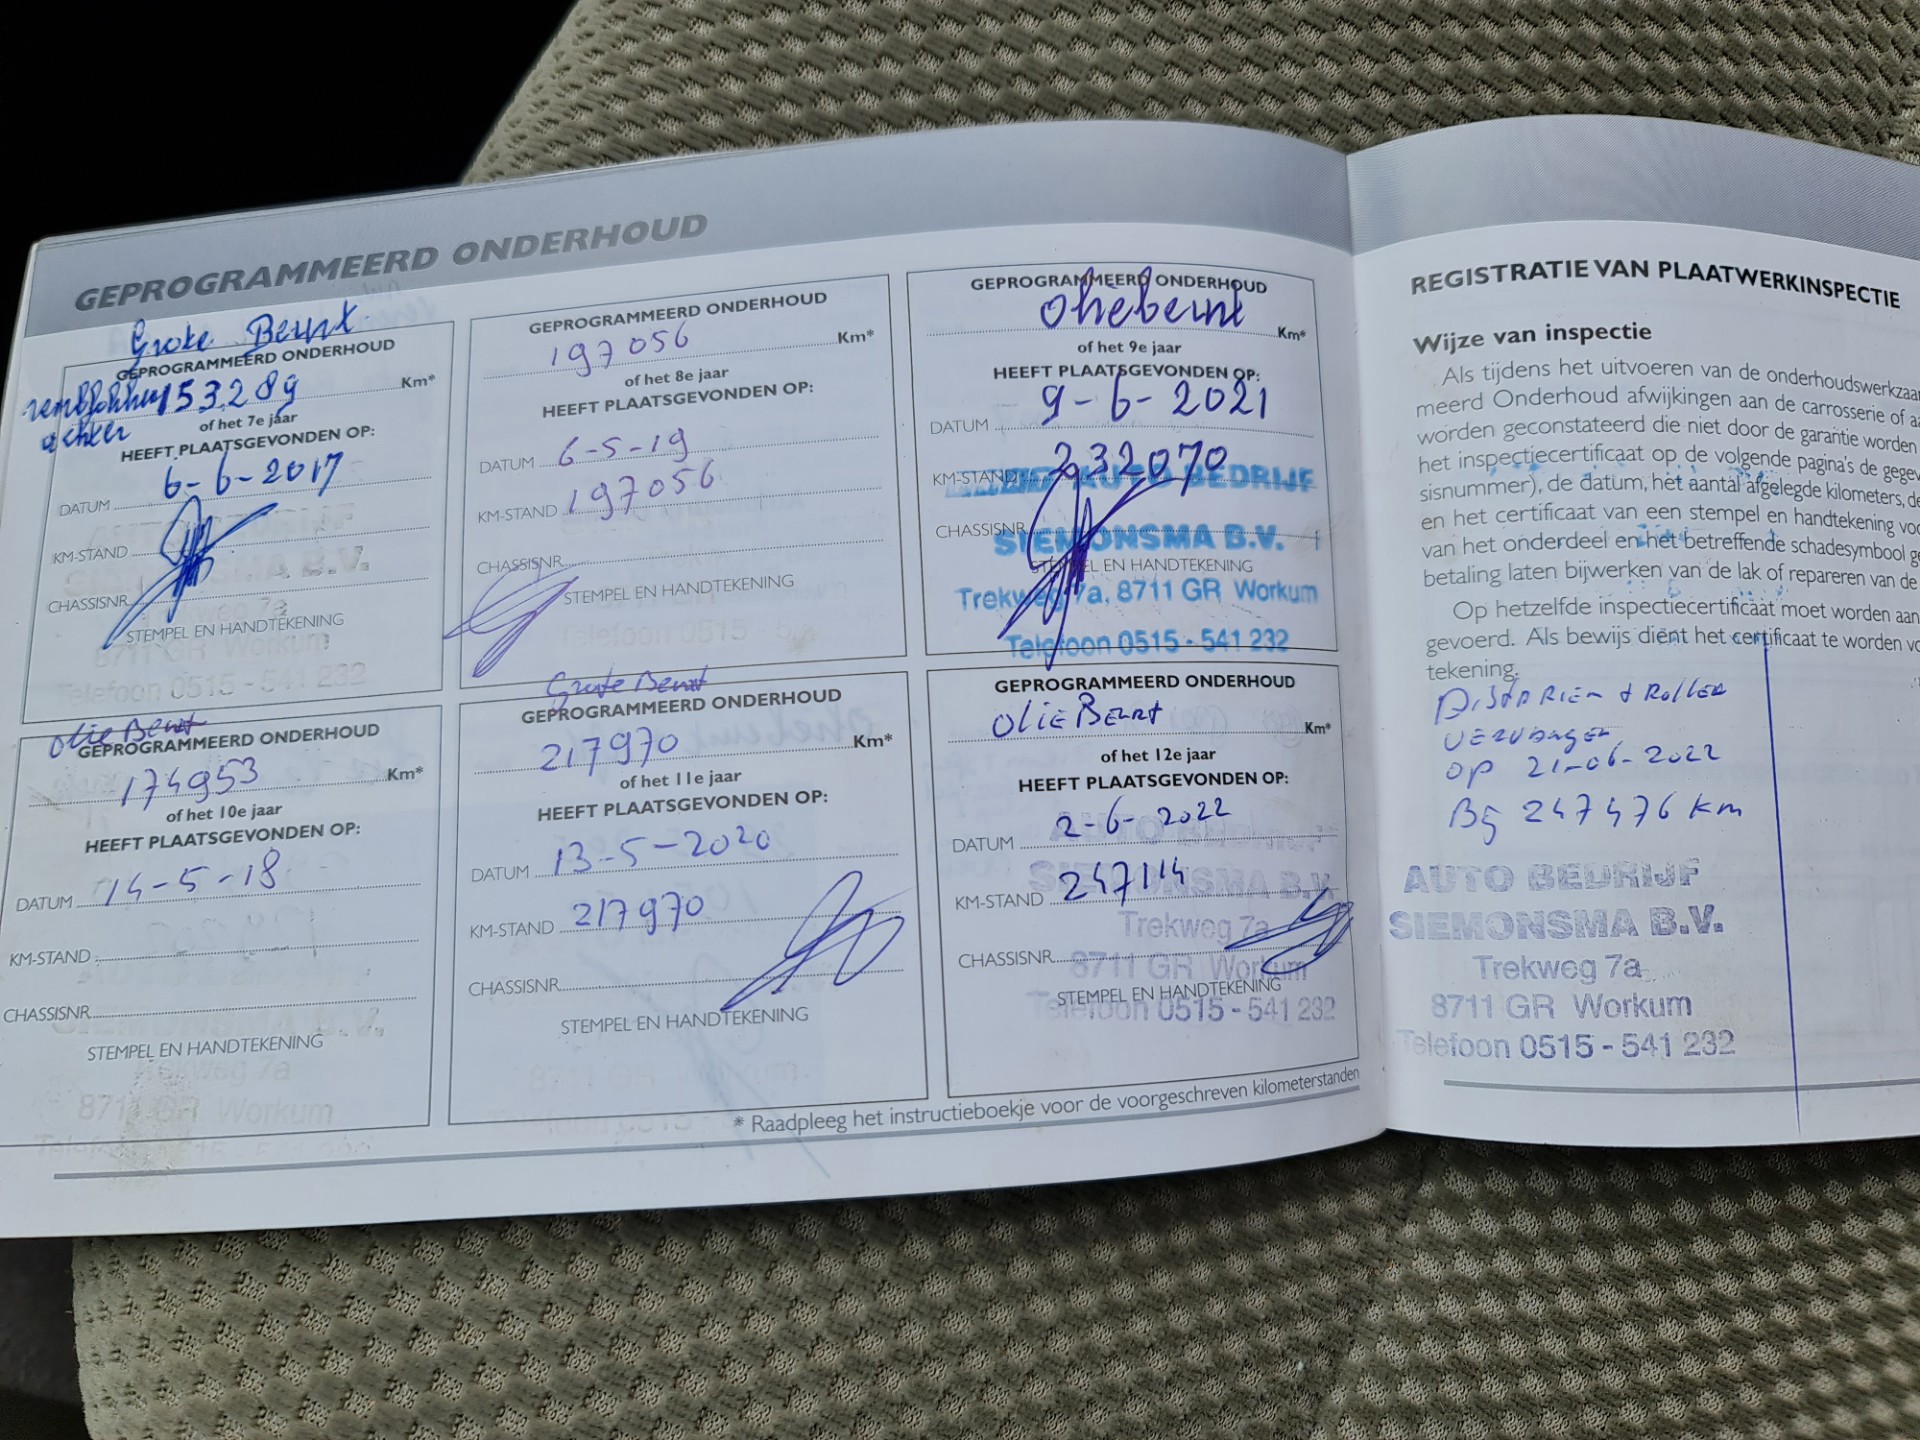 GEPROGRAMMEERD ONDERHOUD
Grote Beurt
GEPROGRAMMEERD ONDERHOUD
153289 Km*
of het 7e jaar
achter
HEEFT PLAATSGEVONDEN OP:
DATUM 6-6-2017
KM-STAND
CHASSISNR.
STEMPEL EN HANDTEKENING
8711 GR Workum
Telefoon 0515 - 541 232
GEPROGRAMMEERD ONDERHOUD
197056 Km*
of het 8e jaar
HEEFT PLAATSGEVONDEN OP:
DATUM 6-5-19
KM-STAND 197056
CHASSISNR.
STEMPEL EN HANDTEKENING
GEPROGRAMMEERD ONDERHOUD
Oliebeurt Km*
of het 9e jaar
HEEFT PLAATSGEVONDEN OP:
DATUM 9-6-2021
KM-STAND 232070
AUTO BEDRIJF
CHASSISNR.
SIEMONSMA B.V.
STEMPEL EN HANDTEKENING
Trekweg 7a, 8711 GR Workum
Telefoon 0515 - 541 232
Olie Beurt
GEPROGRAMMEERD ONDERHOUD
174953 Km*
of het 10e jaar
HEEFT PLAATSGEVONDEN OP:
DATUM 14-5-18
KM-STAND
CHASSISNR.
STEMPEL EN HANDTEKENING
Trekweg 7a
8711 GR Workum
Grote Beurt
GEPROGRAMMEERD ONDERHOUD
217970 Km*
of het 11e jaar
HEEFT PLAATSGEVONDEN OP:
DATUM 13-5-2020
KM-STAND 217970
CHASSISNR.
STEMPEL EN HANDTEKENING
GEPROGRAMMEERD ONDERHOUD
Olie Beurt Km*
of het 12e jaar
HEEFT PLAATSGEVONDEN OP:
DATUM 2-6-2022
AUTO BEDRIJF
SIEMONSMA B.V.
KM-STAND 247114
Trekweg 7a
CHASSISNR.
8711 GR Workum
STEMPEL EN HANDTEKENING
Telefoon 0515 - 541 232
* Raadpleeg het instructieboekje voor de voorgeschreven kilometerstanden
REGISTRATIE VAN PLAATWERKINSPECTIE
Wijze van inspectie
Als tijdens het uitvoeren van de onderhoudswerkzaa
meerd Onderhoud afwijkingen aan de carrosserie of
worden geconstateerd die niet door de garantie worden
het inspectiecertificaat op de volgende pagina's de gegev
sisnummer), de datum, het aantal afgelegde kilometers, de
en het certificaat van een stempel en handtekening voo
van het onderdeel en het betreffende schadesymbool
betaling laten bijwerken van de lak of repareren van de
Op hetzelfde inspectiecertificaat moet worden aan
gevoerd. Als bewijs dient het certificaat te worden
tekening.
Dist Riem + Roller
vervangen
op 21-06-2022
Bij 247476 Km
AUTO BEDRIJF
SIEMONSMA B.V.
Trekweg 7a
8711 GR Workum
Telefoon 0515 - 541 232